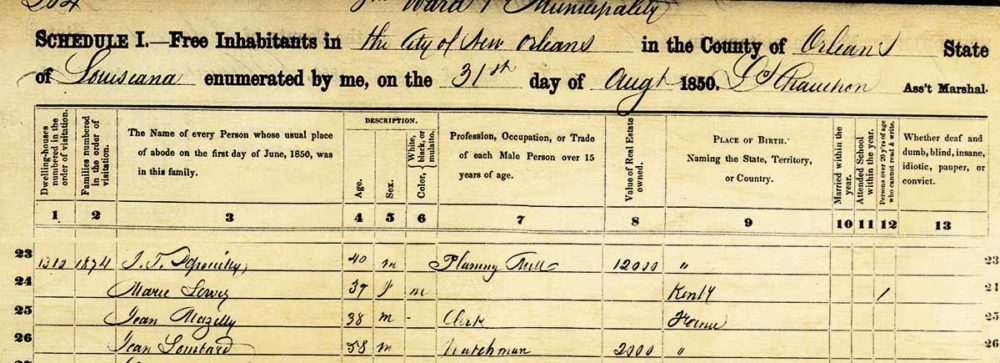 204 Ward 1 Municipality
SCHEDULE I.—Free Inhabitants in the City of New Orleans in the County of Orleans State
of Louisiana enumerated by me, on the 31st day of Augt 1850. Ass't Marshal.
Dwelling-houses numbered in the order of visitation.
Families numbered in the order of visitation.
The Name of every Person whose usual place of abode on the first day of June, 1850, was in this family.
DESCRIPTION.
Age.
Sex.
Color, { White, black, or mulatto.
Profession, Occupation, or Trade of each Male Person over 15 years of age.
Value of Real Estate owned.
PLACE OF BIRTH. Naming the State, Territory, or Country.
Married within the year.
Attended School within the year.
Persons over 20 y'rs of age who cannot read & write.
Whether deaf and dumb, blind, insane, idiotic, pauper, or convict.
1 2 3 4 5 6 7 8 9 10 11 12 13
23 1312 1874 40 m 12000 " 23
24 Marie 39 f m Kenty / 24
25 Jean Mazilly 38 m - Clerk 25
26 Jean Lombard 58 m Watchman 2000 " 26